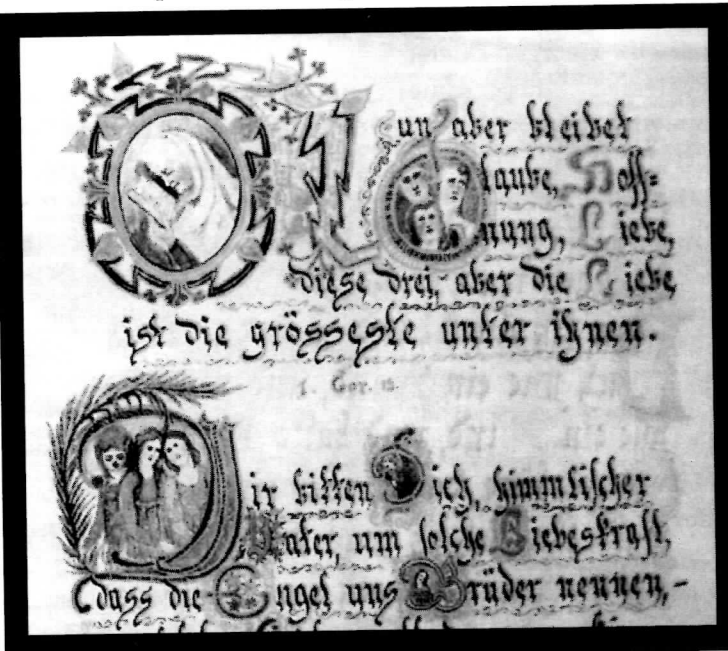 Nun aber bleibet
Glaube, Hoff=
nung, Liebe,
diese drei, aber die Liebe
ist die grösseste unter ihnen.
1. Cor. 13.
Wir bitten Dich, himmlischer
Vater, um solche Liebeskraft,
dass die Engel uns Brüder nennen,-